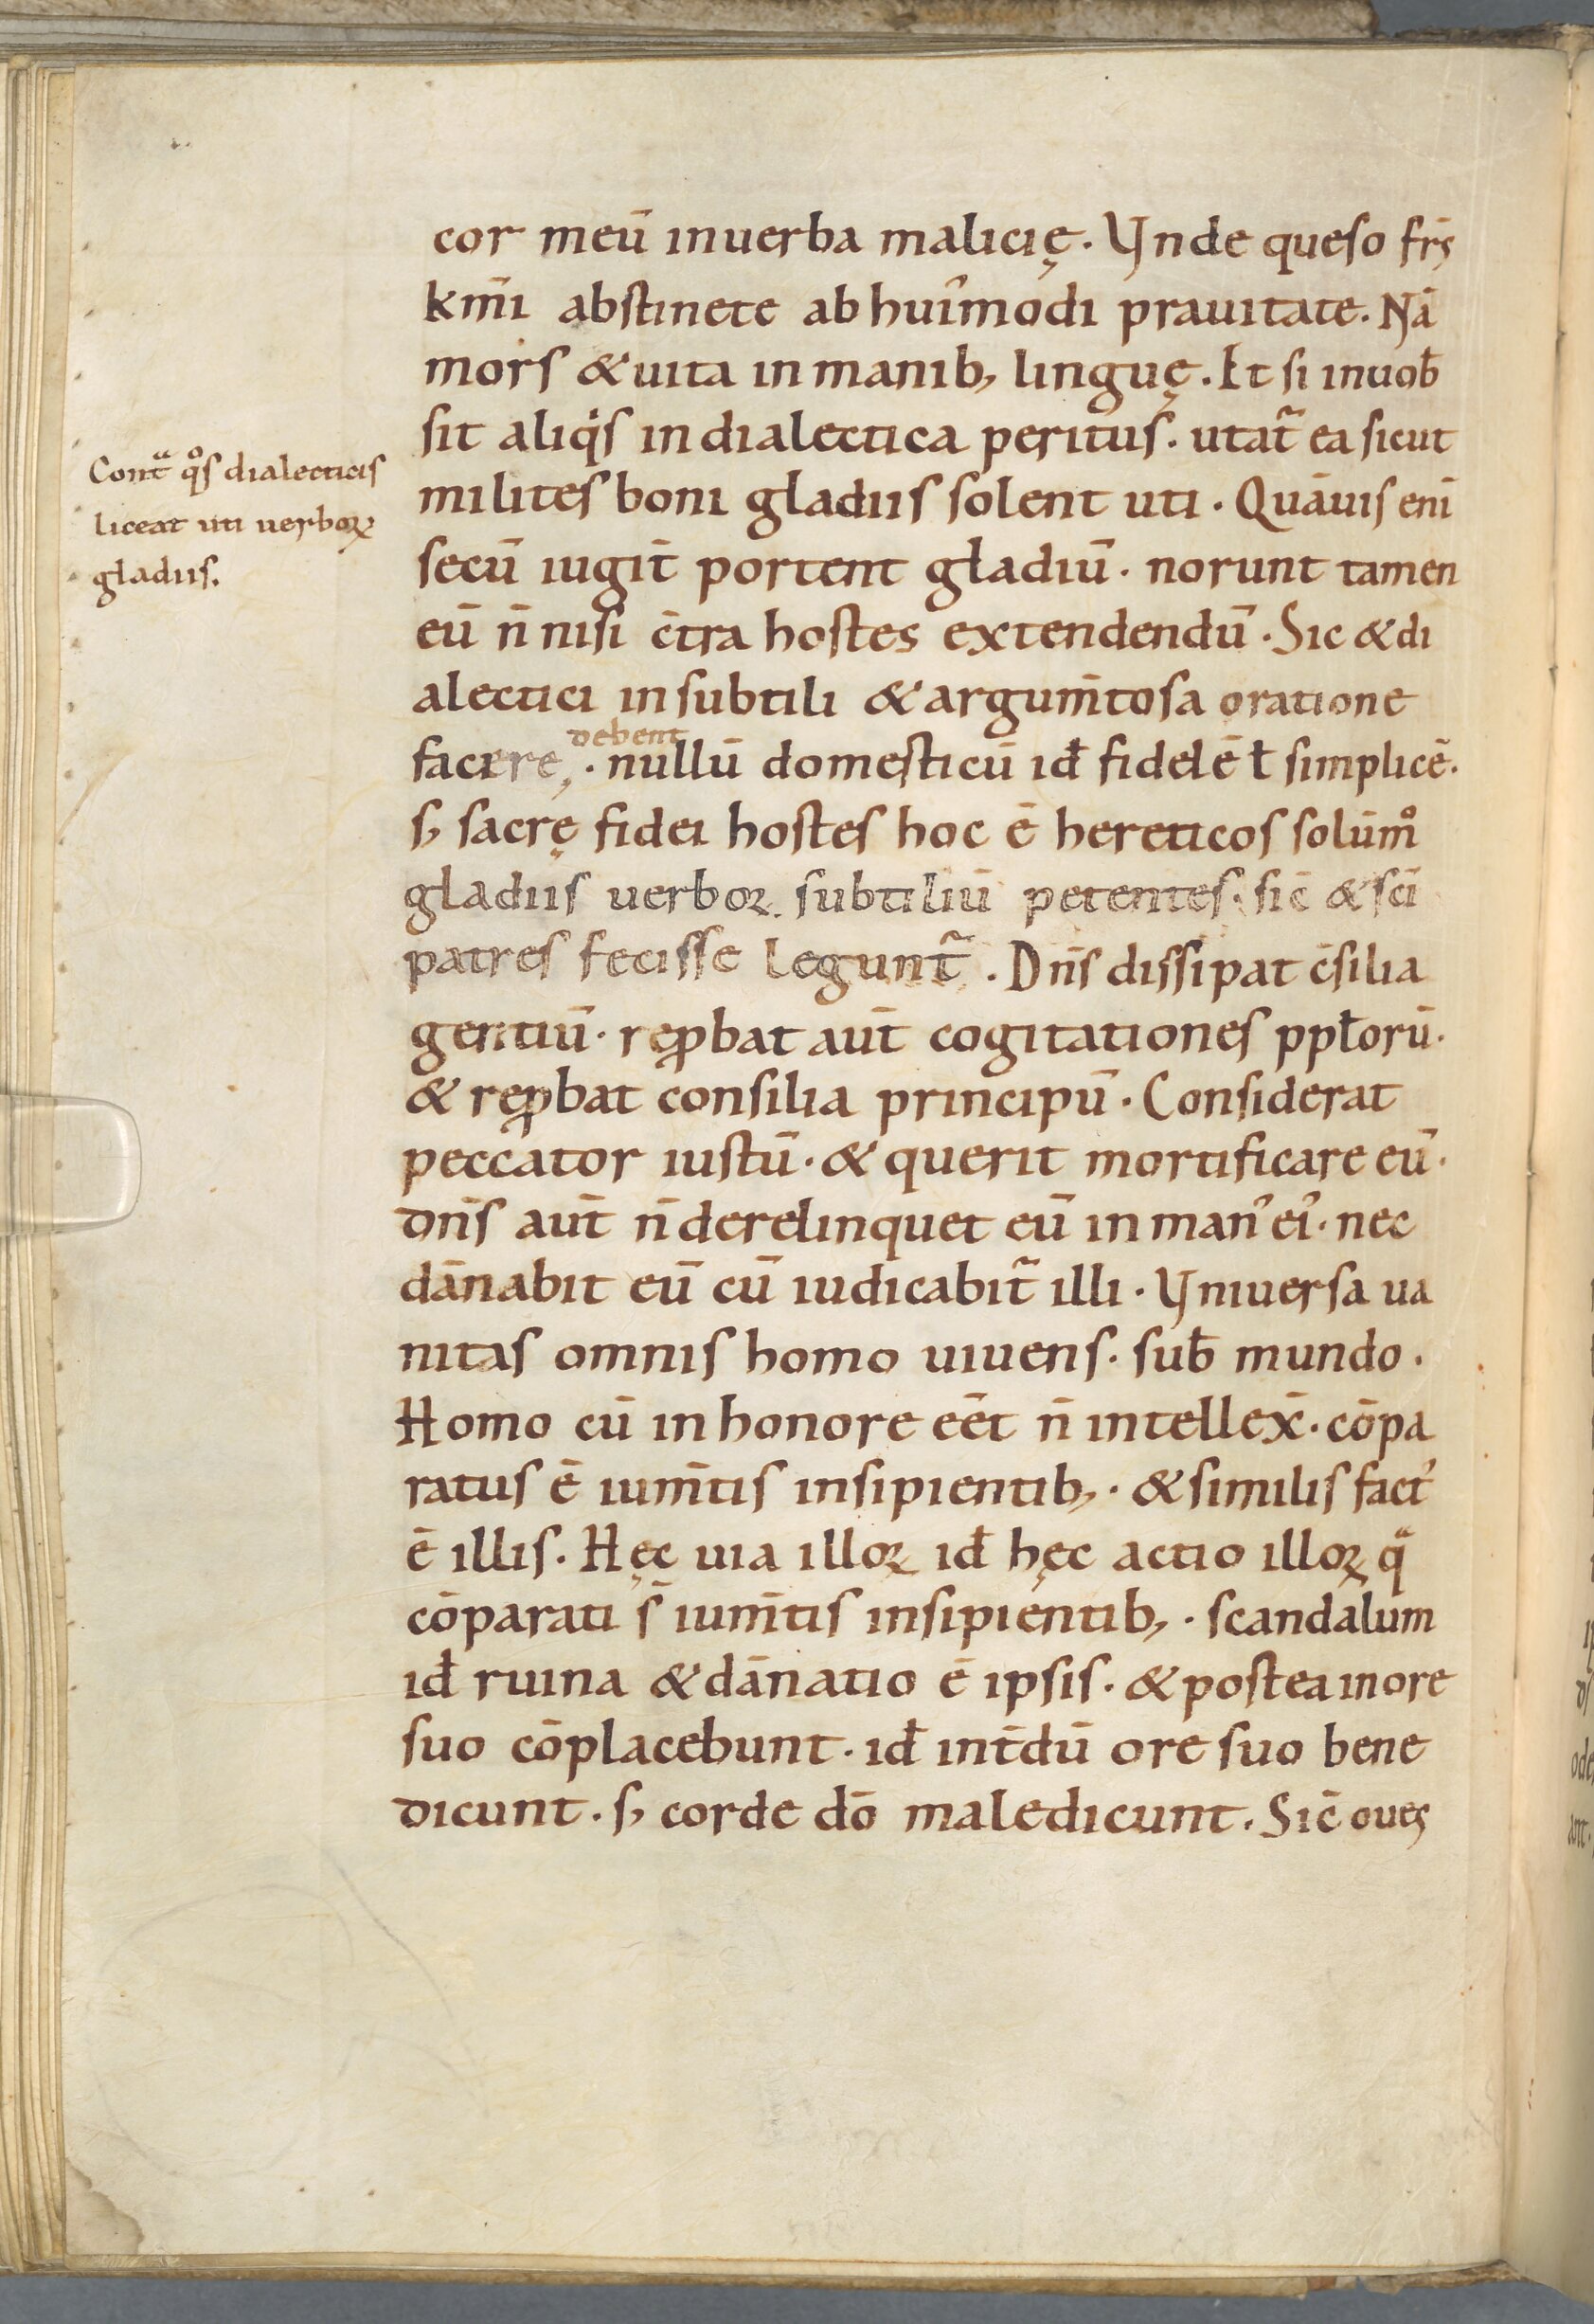 cor meū inuerba malicię. Vnde queso fr̄s
km̄i abstinete ab hui᾽modi prauitate. Nā
mors & uita in manib; linguę. Et si inuob̄
sit aliqͥs in dialectica peritus. utat᷑ ea sicut
Contᷓ qͦs dialecticis
liceat uti uerboꝝ
gladiis.
milites boni gladiis solent uti. Quāuis enī
secū iugit̄ portent gladiū. norunt tamen
eū n̄ nisi c̄tra hostes extendendū. Sic & di
alectici in subtili & argum̄tosa oratione
debent
facere, . nullū domesticū id̄ fidelē ł simplicē.
s; sacrę fidei hostes hoc ē hereticos solūmͦ
gladiis uerboꝝ. subtiliū petentes. sic̄ & sc̄i
patres fecisse legunt᷑. Dn̄s dissipat c̄silia
gentiū. reꝓbat aūt cogitationes ppłorū.
& reꝓbat consilia principū. Considerat
peccator iustū. & querit mortificare eū.
dn̄s aūt n̄ derelinquet eū in man᾽ ei᾽. nec
dānabit eū cū iudicabit᷑ illi. Vniuersa ua
nitas omnis homo uiuens. sub̄ mundo.
Homo cū in honore eēt n̄ intellex̄. cōpa
ratus ē ium̄tis insipientib;. & similis fact᾽
ē illis. Hęc uia illoꝝ id̄ hęc actio illoꝝ qᷓ
cōparati s̄ ium̄tis insipientib;. scandalum
id̄ ruina & dānatio ē ipsis. & postea in ore
suo cōplacebunt. id̄ int̄dū ore suo bene
dicunt. s; corde dō maledicunt. Sic̄ oues